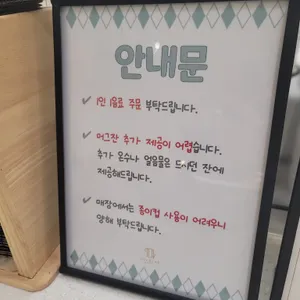 안내문
✓ 1인 1음료 주문 부탁드립니다.
✓ 머그잔 추가 제공이 어렵습니다.
추가 온수나 얼음물은 드시던 잔에
제공해드립니다.
✓ 매장에서는 종이컵 사용이 어려우니
양해 부탁드립니다.